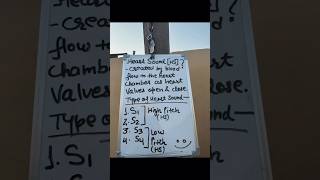 Heart Sound [HS] ?
- Created by blood
flow to the heart
chamber as heart
Valves open & close.
Type of Heart Sound—
1. S1 ] High Pitch
2. S2 ] (HS)
3. S3 ] Low
4. S4 ] Pitch
(HS)
1. S1